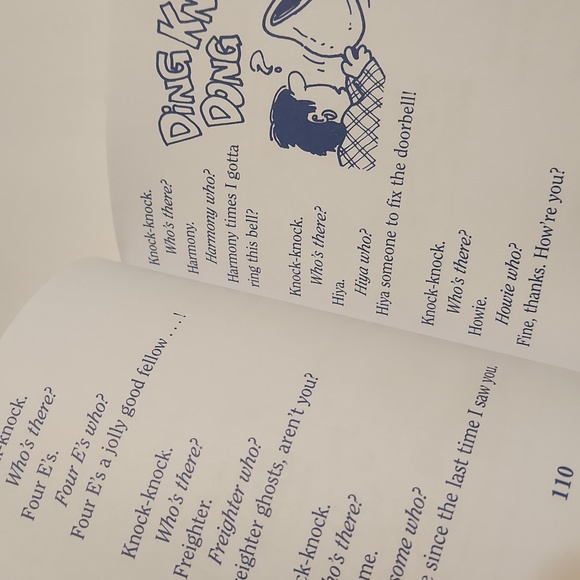 knock.
Who's there?
Four E's.
Four E's who?
Four E's a jolly good fellow . . . !
Knock-knock.
Who's there?
Freighter.
Freighter who?
eighter ghosts, aren't you?
ck-knock.
ho's there?
me.
some who?
e since the last time I saw you.
110
DING KN
DONG
?
Knock-knock.
Who's there?
Harmony.
Harmony who?
Harmony times I gotta
ring this bell?
Knock-knock.
Who's there?
Hiya.
Hiya who?
Hiya someone to fix the doorbell!
Knock-knock.
Who's there?
Howie.
Howie who?
Fine, thanks. How're you?